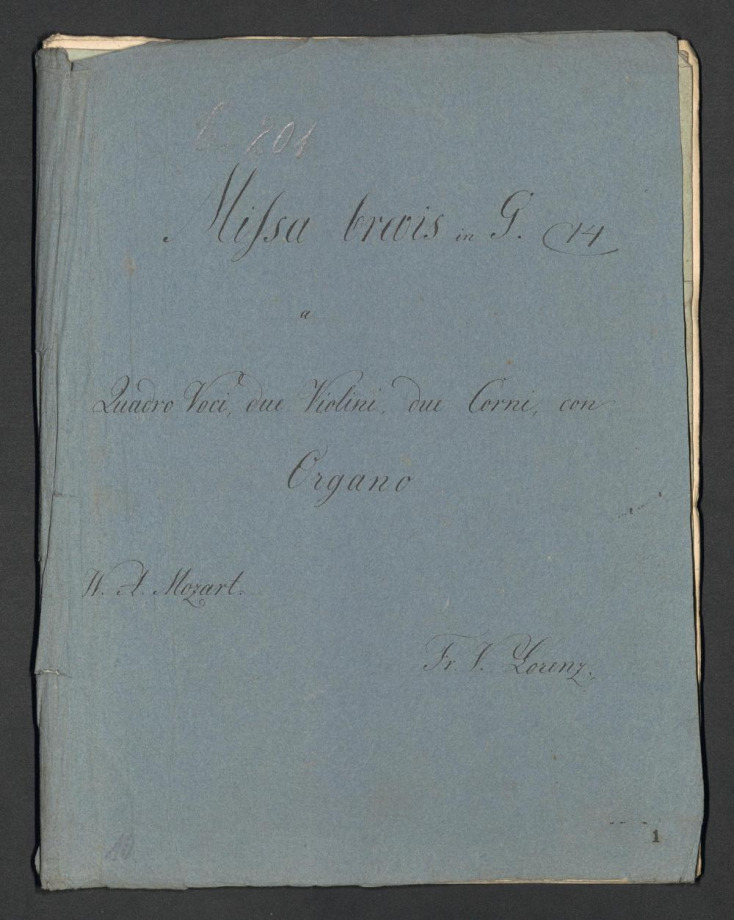 201
Missa brevis in G. 14
a
Quadro Voci, due Violini, due Corni, con
Organo
W. A. Mozart.
Fr. V. Lorenz.
10
1